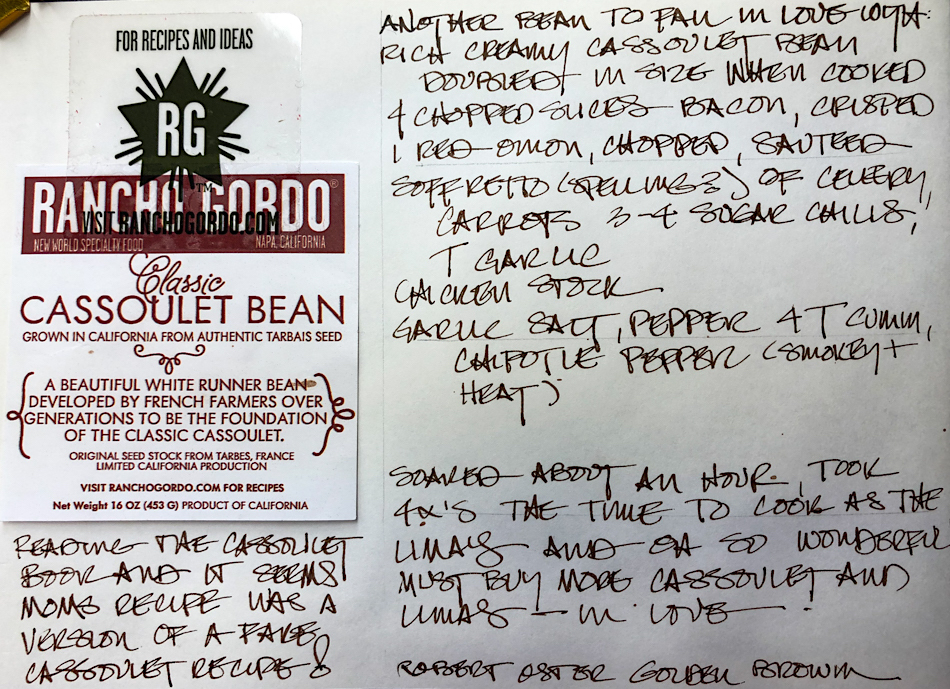 FOR RECIPES AND IDEAS
RG
RANCHO GORDO®
™
VISIT RANCHOGORDO.COM
NEW WORLD SPECIALTY FOOD NAPA, CALIFORNIA
Classic
CASSOULET BEAN
GROWN IN CALIFORNIA FROM AUTHENTIC TARBAIS SEED
A BEAUTIFUL WHITE RUNNER BEAN
DEVELOPED BY FRENCH FARMERS OVER
GENERATIONS TO BE THE FOUNDATION
OF THE CLASSIC CASSOULET.
ORIGINAL SEED STOCK FROM TARBES, FRANCE
LIMITED CALIFORNIA PRODUCTION
VISIT RANCHOGORDO.COM FOR RECIPES
Net Weight 16 OZ (453 G) PRODUCT OF CALIFORNIA
READING THE CASSOULET
BOOK AND IT SEEMS
MOMS RECIPE WAS A
VERSION OF A FAKE
CASSOULET RECIPE!
ANOTHER BEAN TO FALL IN LOVE WITH:
RICH CREAMY CASSOULET BEAN
DOUBLED IN SIZE WHEN COOKED
4 CHOPPED SLICES BACON, CRISPED
1 RED ONION, CHOPPED, SAUTEED
SOFFRETTO (SPELLING?) OF CELERY,
CARROTS 3-4 SUGAR CHILIS,
T GARLIC
CHICKEN STOCK
GARLIC SALT, PEPPER 4 T CUMIN,
CHIPOTLE PEPPER (SMOKEY +
HEAT)
SOAKED ABOUT AN HOUR, TOOK
4X'S THE TIME TO COOK AS THE
LIMA'S AND OH SO WONDERFUL
MUST BUY MORE CASSOULET AND
LIMAS - IN LOVE
ROBERT OSTER GOLDEN BROWN